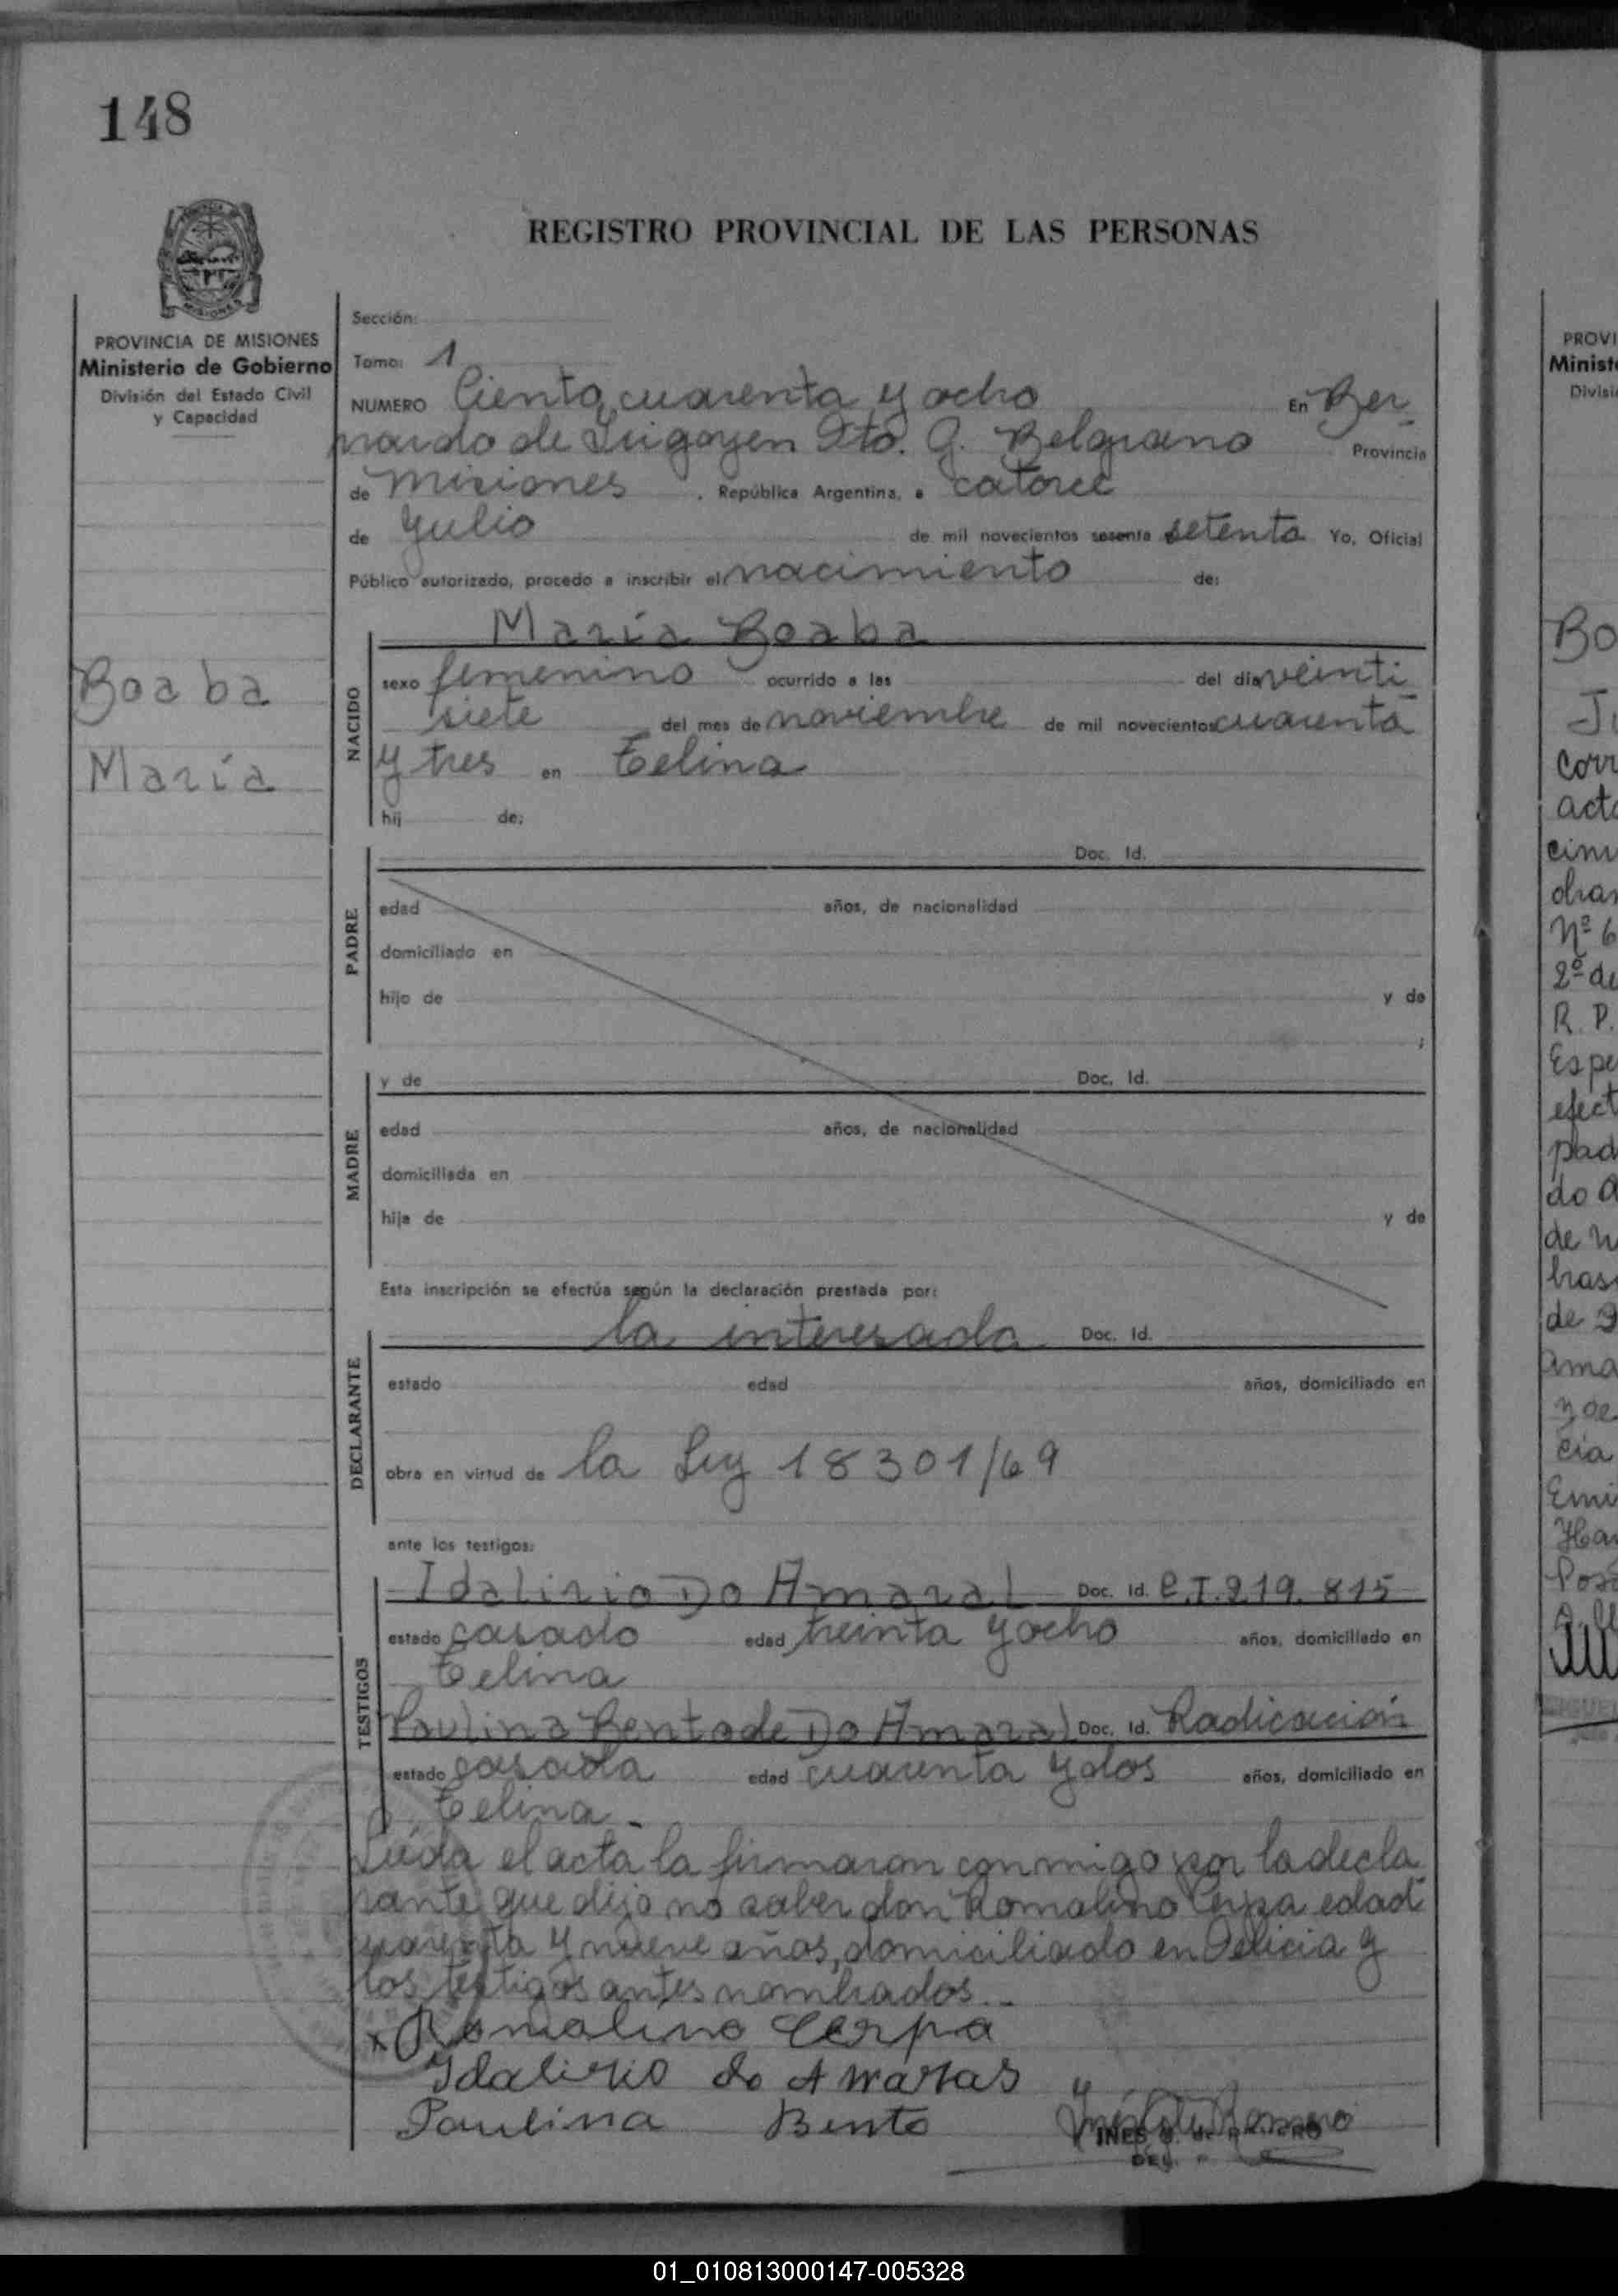 148
REGISTRO PROVINCIAL DE LAS PERSONAS
PROVINCIA DE MISIONES
Ministerio de Gobierno
División del Estado Civil
y Capacidad
Boaba
María
Sección:
Tomo: 1
NUMERO Ciento cuarenta y ocho En Ber
nardo de Irigoyen Dto. G. Belgrano Provincia
de Misiones, República Argentina, a catorce
de Julio de mil novecientos sesenta setenta Yo, Oficial
Público autorizado, procedo a inscribir el nacimiento de:
NACIDO
María Boaba
sexo femenino ocurrido a las del día veinti
siete del mes de noviembre de mil novecientos cuarenta
y tres en Celina
hij de:
PADRE
Doc. Id.
edad años, de nacionalidad
domiciliado en
hijo de y de
;
MADRE
y de Doc. Id.
edad años, de nacionalidad
domiciliada en
hija de y de
Esta inscripción se efectúa según la declaración prestada por:
DECLARANTE
la interesada Doc. Id.
estado edad años, domiciliado en
obra en virtud de la Ley 18301/69
ante los testigos:
TESTIGOS
Idalirio Do Amaral Doc. Id. C.I. 219.815
estado casado edad treinta y ocho años, domiciliado en
Celina
Paulina Bento de Do Amaral Doc. Id. Radicación
estado casada edad cuarenta y dos años, domiciliado en
Celina.
Leída el acta la firmaron conmigo por la decla
rante que dijo no saber don Romalino Cerpa edad
cuarenta y nueve años, domiciliado en Delicia y
los testigos antes nombrados.-
x Romalino Cerpa
Idalirio do Amaras
Paulina Bento
01_010813000147-005328